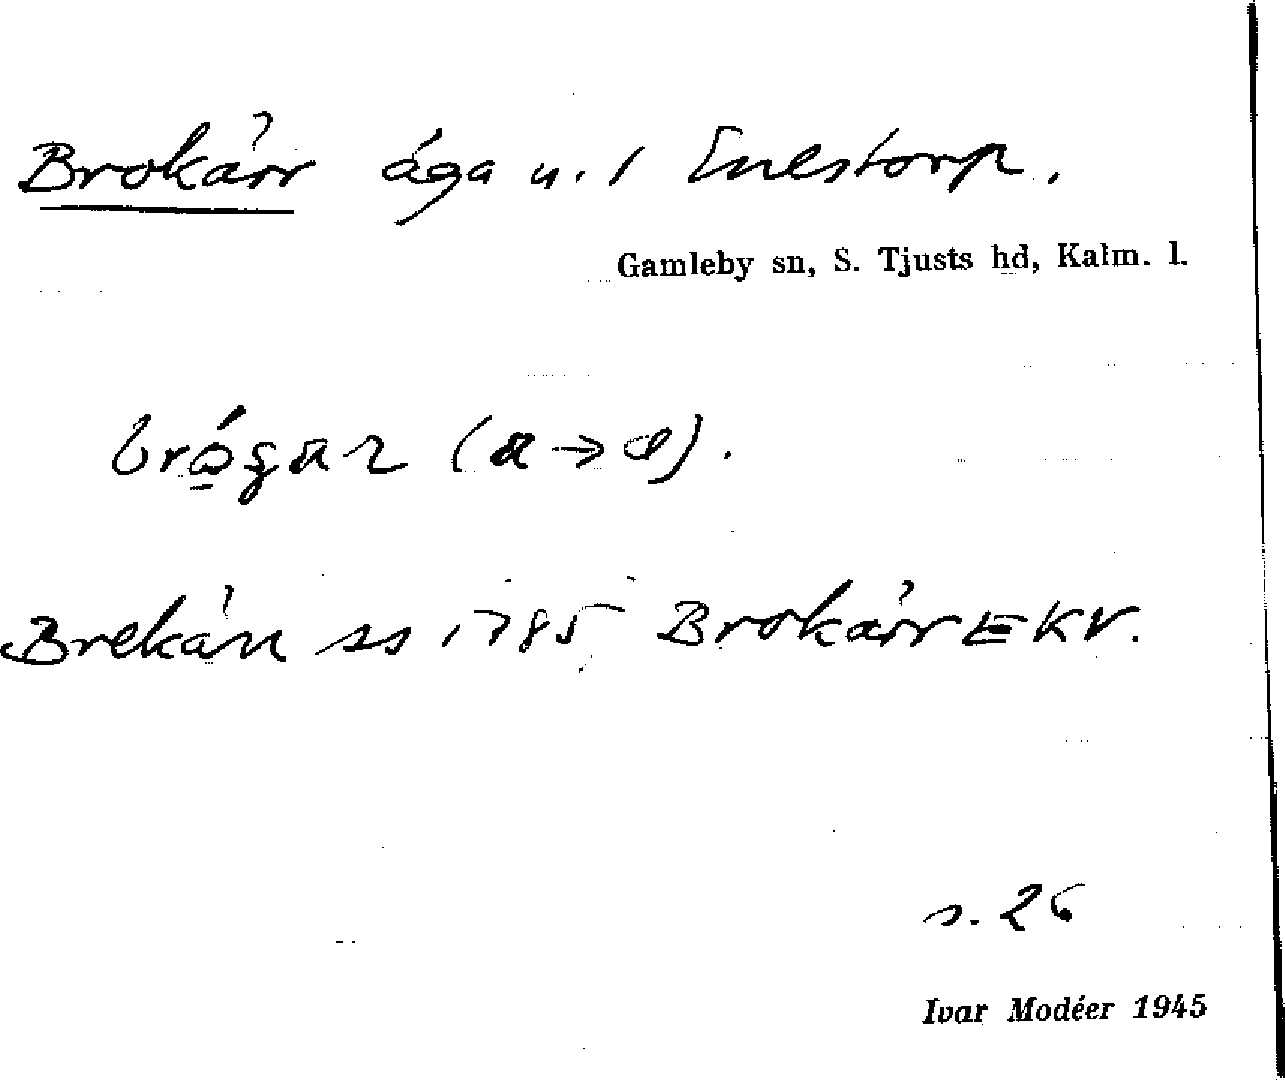 Brokärr äga u. 1 Enestorp.
Gamleby sn, S. Tjusts hd, Kalm. l.
(a → ).
Brekärr ss 1785 Brokärr EKV.
s. 26
Ivar Modéer 1945